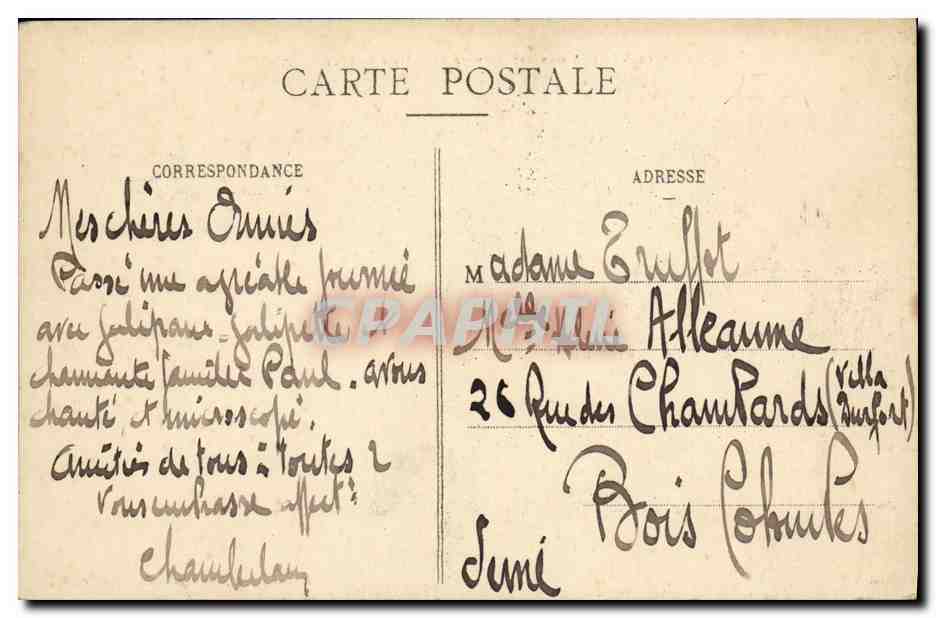 CARTE POSTALE
CORRESPONDANCE
Mes chères Amies
Passé une agréable journée
avec
charmante famille Paul. avons
chanté, et microscopé.
Amitiés de tous à toutes 2
Vous embrasse affect^t
ADRESSE
Madame Truffot
Alleaume
26 Rue des Chambards (Villa
Durfort)
Bois Colombes
Seine
CPAPHIL